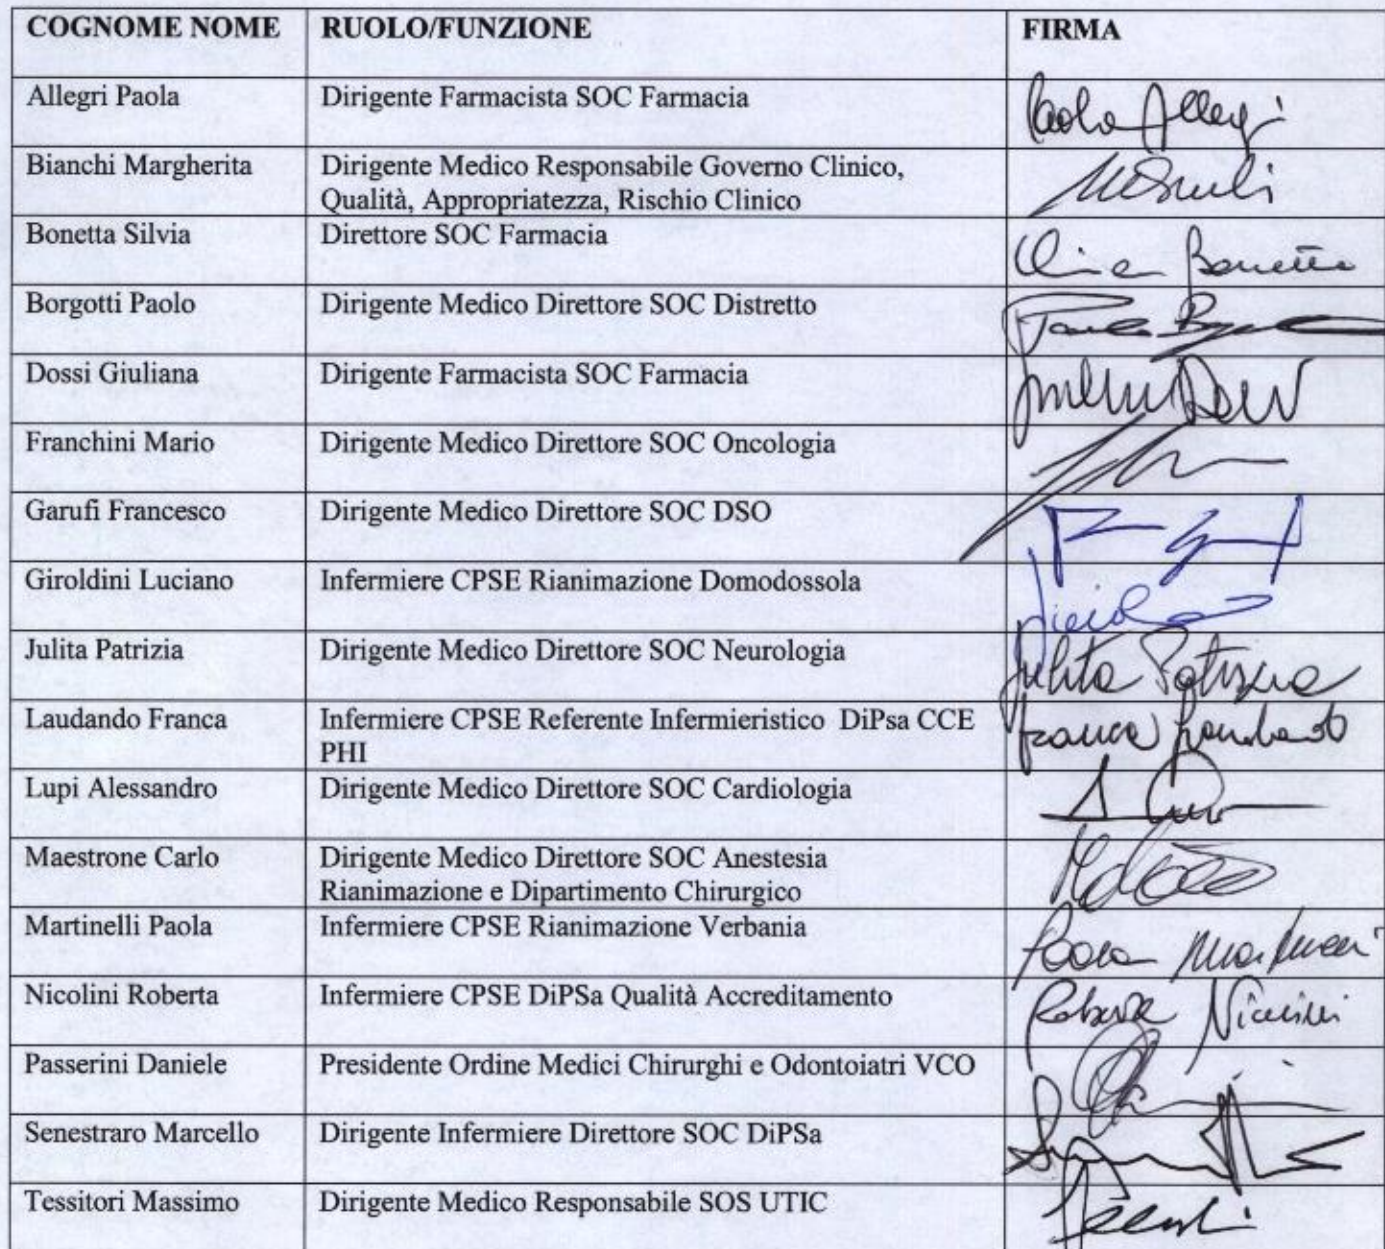 COGNOME NOME RUOLO/FUNZIONE FIRMA
Allegri Paola Dirigente Farmacista SOC Farmacia Paola Allegri
Bianchi Margherita Dirigente Medico Responsabile Governo Clinico,
Qualità, Appropriatezza, Rischio Clinico
Bonetta Silvia Direttore SOC Farmacia
Borgotti Paolo Dirigente Medico Direttore SOC Distretto
Dossi Giuliana Dirigente Farmacista SOC Farmacia
Franchini Mario Dirigente Medico Direttore SOC Oncologia
Garufi Francesco Dirigente Medico Direttore SOC DSO
Giroldini Luciano Infermiere CPSE Rianimazione Domodossola
Julita Patrizia Dirigente Medico Direttore SOC Neurologia Julita Patrizia
Laudando Franca Infermiere CPSE Referente Infermieristico DiPsa CCE
PHI Franca Laudando
Lupi Alessandro Dirigente Medico Direttore SOC Cardiologia
Maestrone Carlo Dirigente Medico Direttore SOC Anestesia
Rianimazione e Dipartimento Chirurgico
Martinelli Paola Infermiere CPSE Rianimazione Verbania Paola Martinelli
Nicolini Roberta Infermiere CPSE DiPSa Qualità Accreditamento Roberta Nicolini
Passerini Daniele Presidente Ordine Medici Chirurghi e Odontoiatri VCO
Senestraro Marcello Dirigente Infermiere Direttore SOC DiPSa
Tessitori Massimo Dirigente Medico Responsabile SOS UTIC